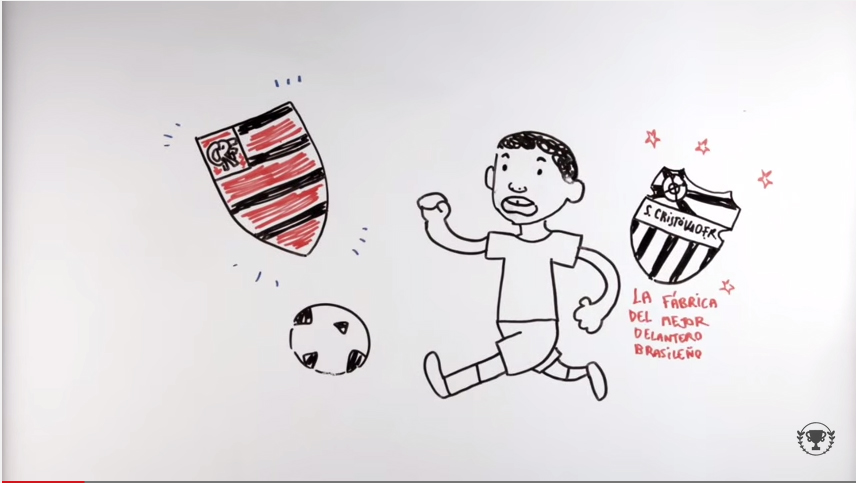 CRF
S. CRISTÓVÃO F.R
LA FÁBRICA
DEL MEJOR
DELANTERO
BRASILEÑO